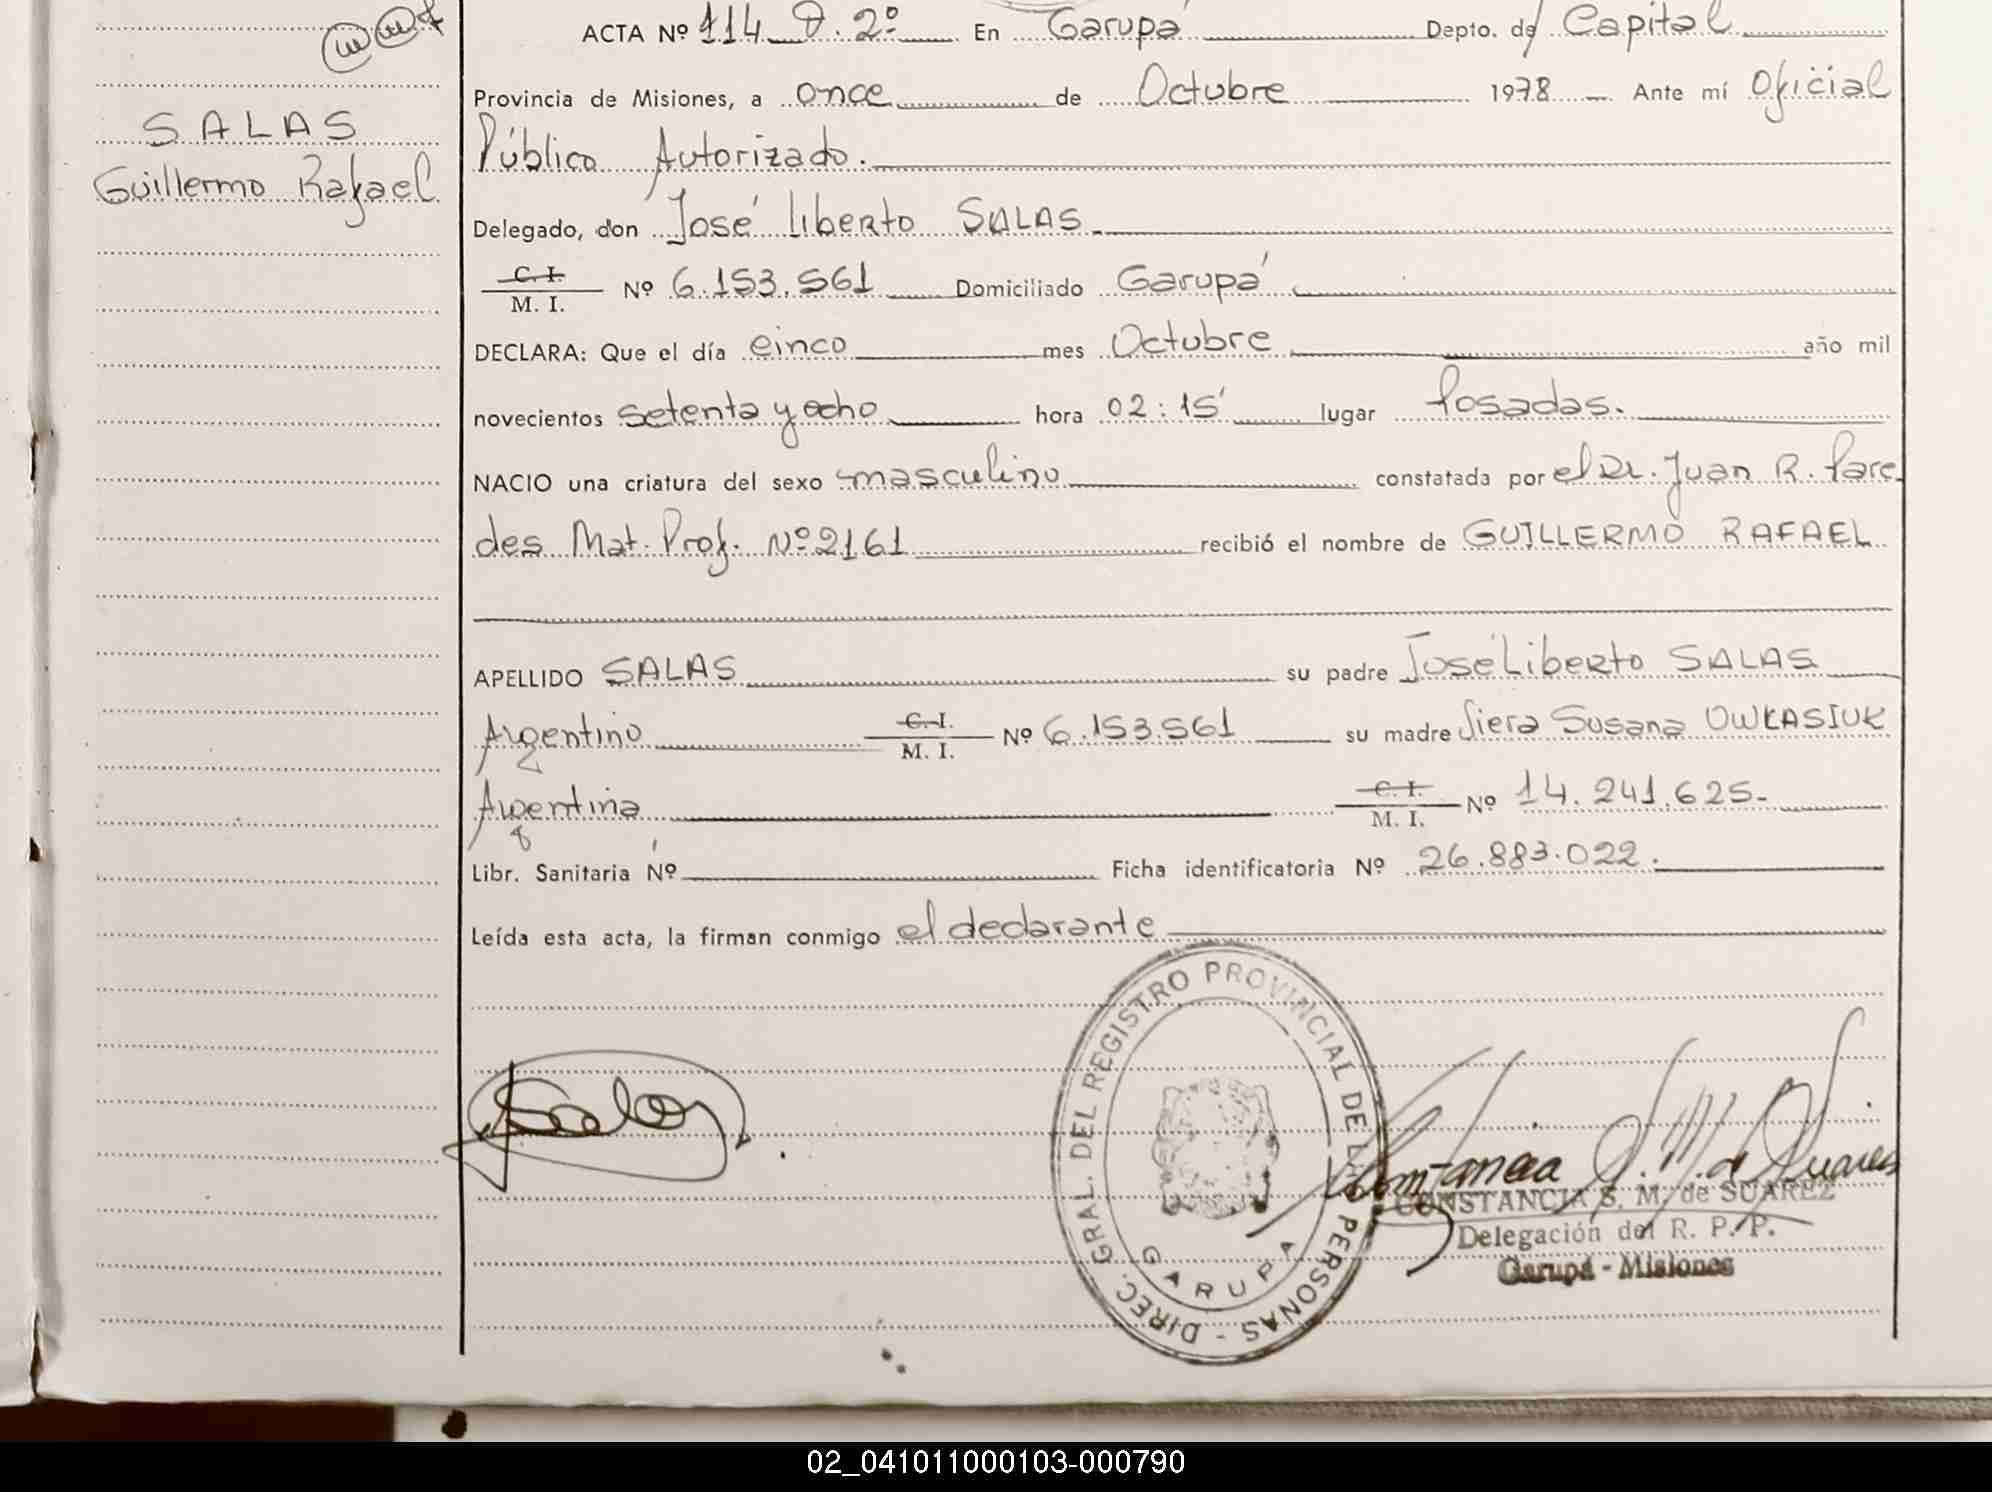 SALAS
Guillermo Rafael
ACTA Nº 114 2º En Garupá Depto. de Capital
Provincia de Misiones, a once de Octubre 1978 Ante mí Oficial
Público Autorizado.
Delegado, don José Liberto SALAS
C. I.
M. I. Nº 6.153.561 Domiciliado Garupá
DECLARA: Que el día cinco mes Octubre año mil
novecientos setenta y ocho hora 02:15' lugar Posadas.
NACIO una criatura del sexo masculino constatada por el Dr. Juan R. Pare
des Mat. Prof. Nº 2161 recibió el nombre de GUILLERMO RAFAEL
APELLIDO SALAS su padre José Liberto SALAS
Argentino C. I.
M. I. Nº 6.153.561 su madre Susana OWKASIUK
Argentina C. I.
M. I. Nº 14.241.625.-
Libr. Sanitaria Nº Ficha identificatoria Nº 26.883.022.
Leída esta acta, la firman conmigo el declarante
Salas
DIREC. GRAL. DEL REGISTRO PROVINCIAL DE LAS PERSONAS -
GARUPA
Constancia S. M. de Suarez
CONSTANCIA S. M. de SUAREZ
Delegación del R. P. P.
Garupá - Misiones
02_041011000103-000790